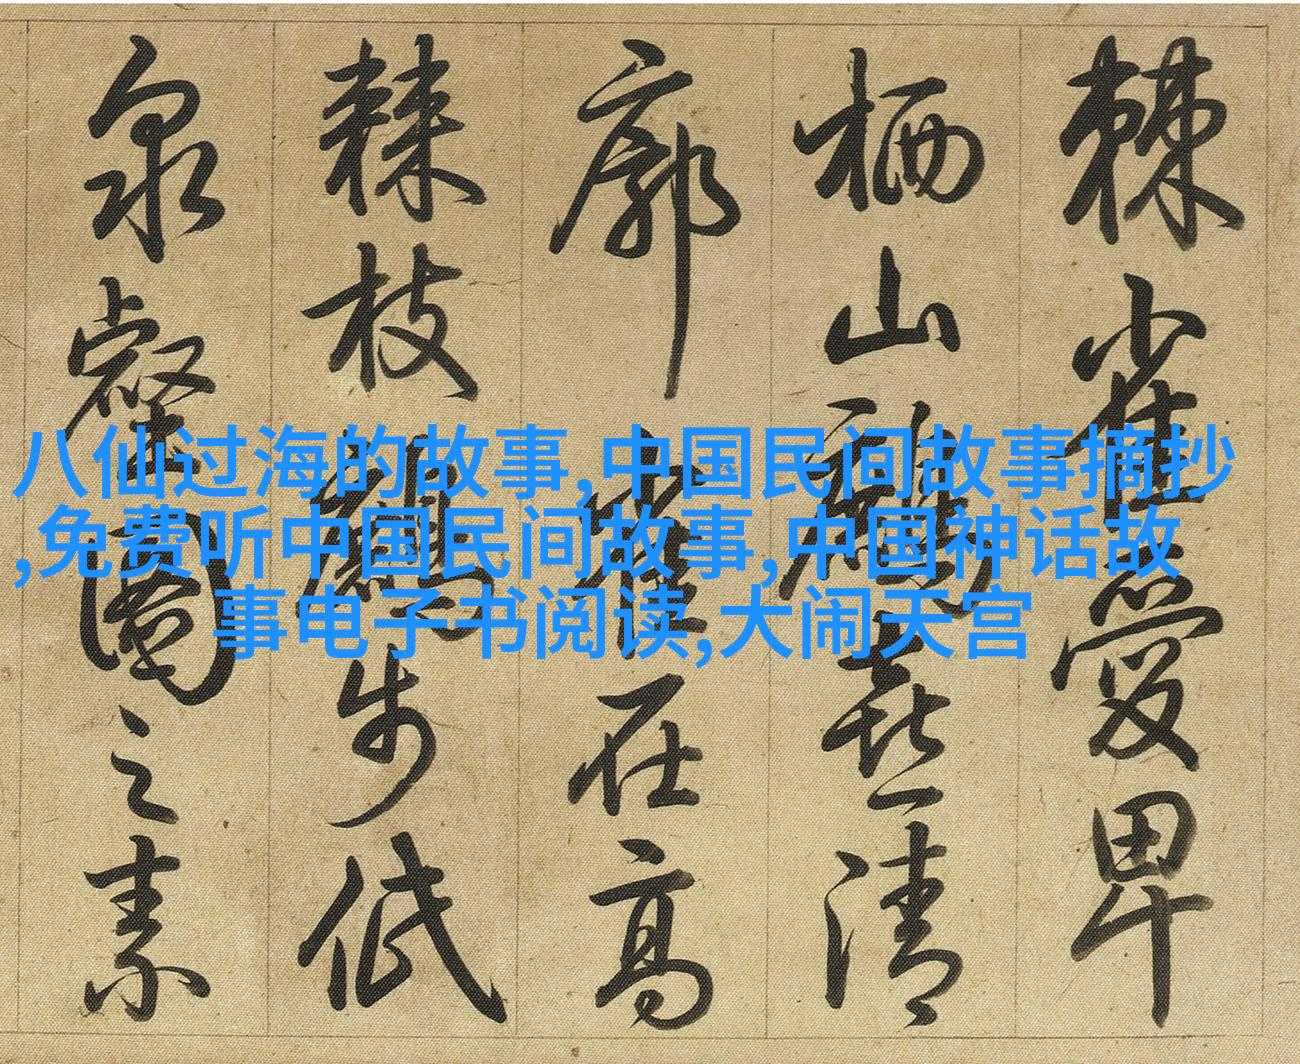 棘雀愛卑
栖山喜清
廓在高
棘枝鶴步低
泉壑園之素
八仙过海的故事,中国民间故事摘抄
,免费听中国民间故事,中国神话故
事电子书阅读,大闹天宫